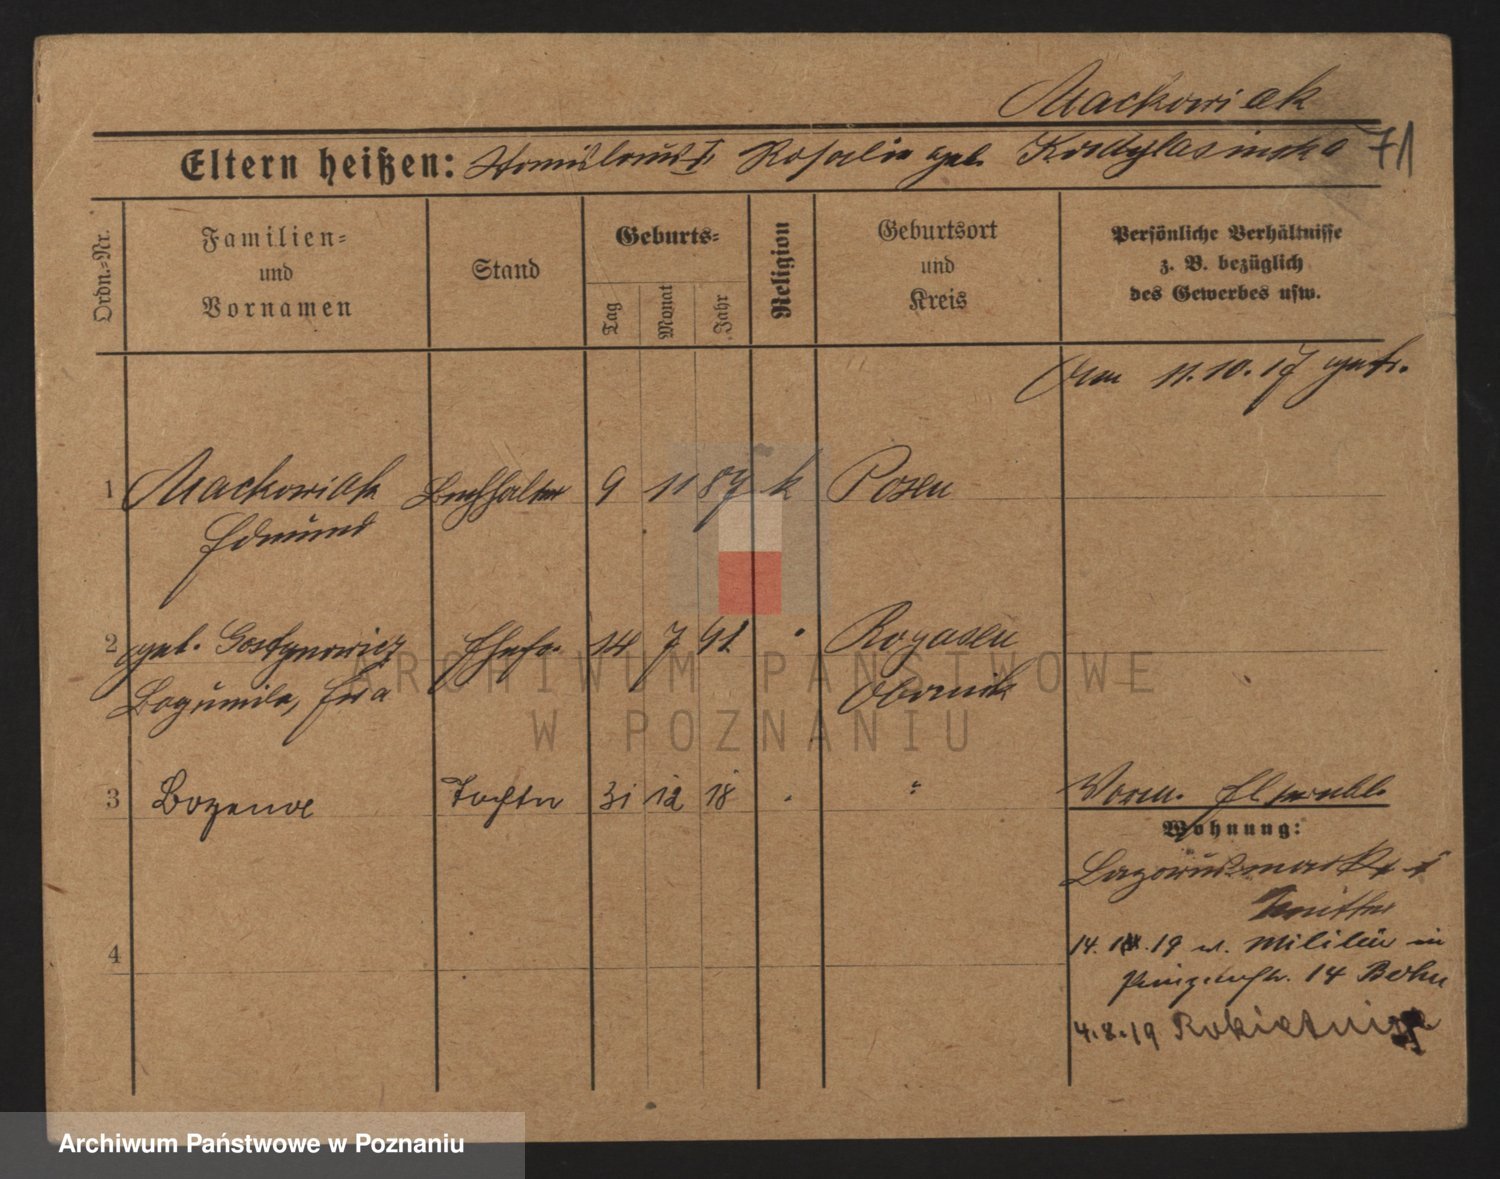 Mackowiak
Eltern heißen: Stanislaus † Rosalie geb. 71
Ordn.-Nr.
Familien-
und
Vornamen
Stand
Geburts-
Tag
Monat
Jahr
Religion
Geburtsort
und
Kreis
Persönliche Verhältnisse
z. B. bezüglich
des Gewerbes usw.
11.10.17 getr.
1 Mackowiak Buchhalter 9 11 89 k Posen
Edmund
2 geb. Gostynowicz Ehefr. 14 7 91 " Rogasen
Bogumila, Eva Obornik
3 Bozena Tochter 31 12 18 " "
Wohnung:
14. .19 v. in
14
4
4.8.19 Rokietnica
ARCHIWUM PAŃSTWOWE
W POZNANIU
Archiwum Państwowe w Poznaniu